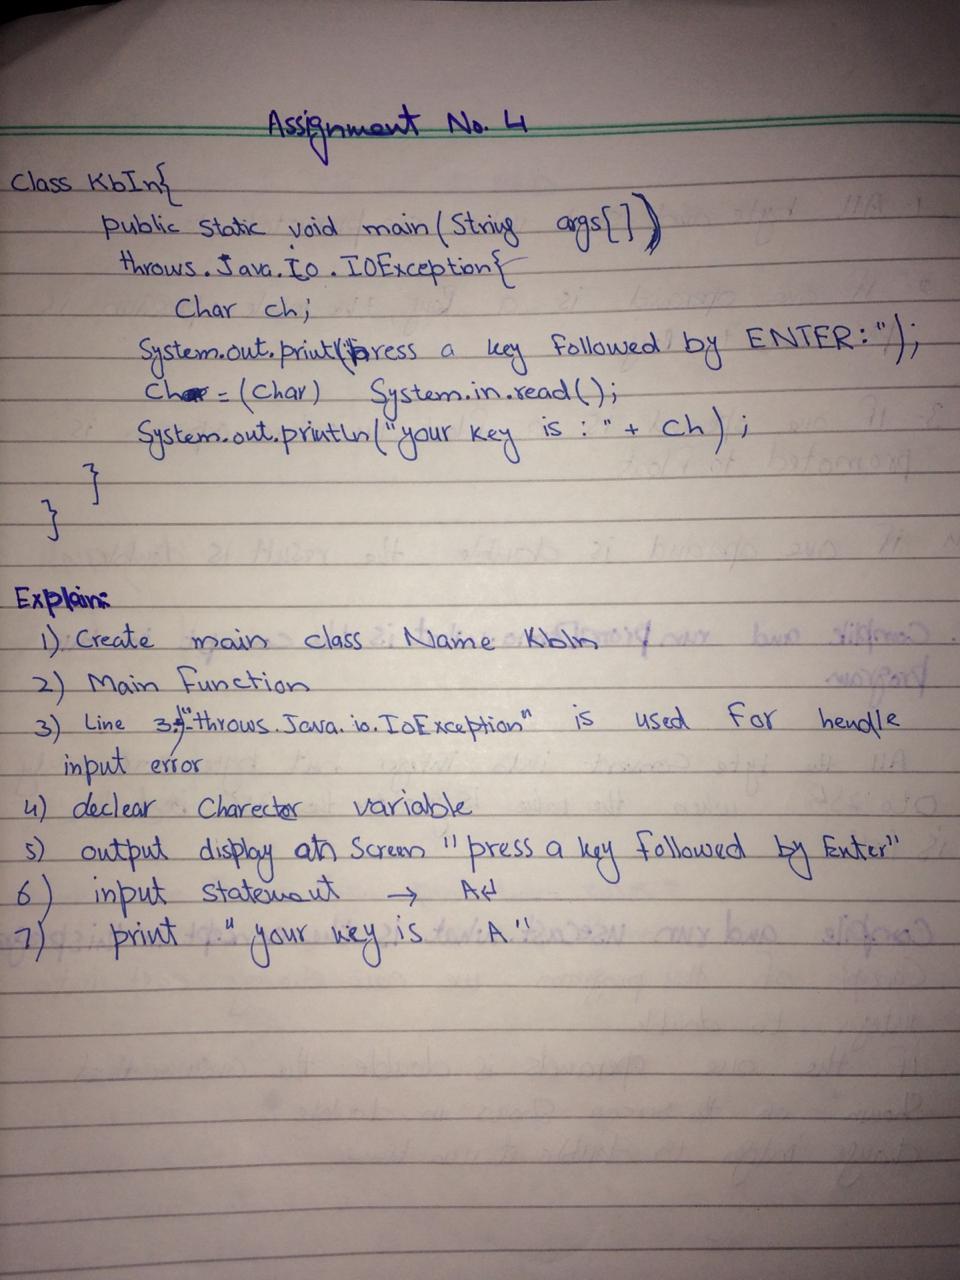 Assignment No. 4
Class KbIn{
public static void main(String args[])
throws.Java.Io.IOException{
Char ch;
System.out.print("press a key followed by ENTER:");
Ch = (Char) System.in.read();
System.out.println("your key is : " + Ch) ;
}
}
Explain:
1) Create main class Name KbIn
2) Main Function
3) Line 3:-"throws.Java.io.IoException" is used For hendle
input error
4) declear Charector variable
5) output display on Screen "press a key Followed by Enter"
6) input statement → A↵
7) print "your key is A"